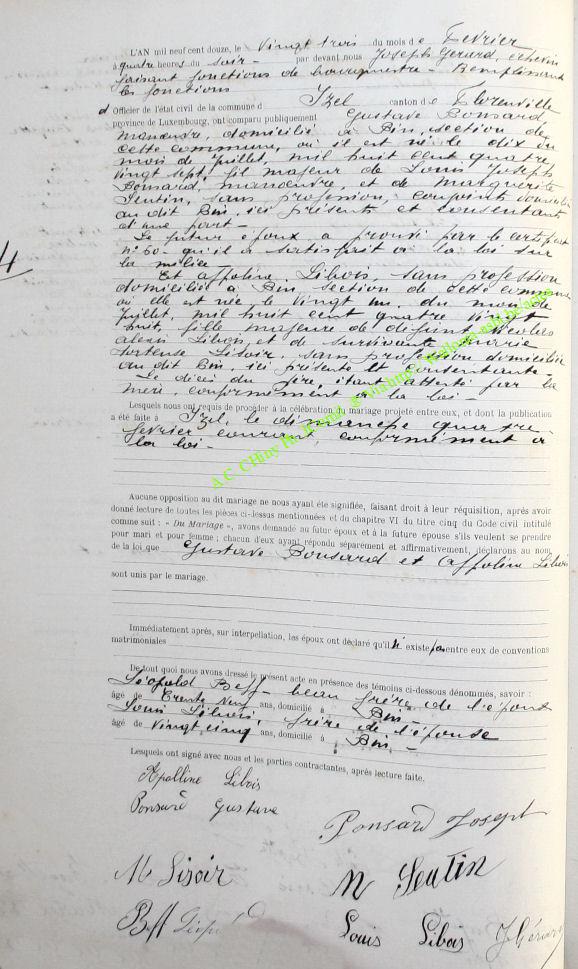 L'AN mil neuf cent douze, le vingt trois du mois de Fevrier
à quatre heures du soir - par devant nous Joseph Gerard, echevin
faisant fonctions de bourgmestre - Remplissant
les fonctions
d Officier de l'état civil de la commune d Izel canton de Florenville
province de Luxembourg, ont comparu publiquement Gustave Ponsard
manœuvre, domicilié à Bin, section de
cette commune, où il est né le dix du
mois de Juillet, mil huit cent quatre
vingt sept, fil majeur de Louis Joseph
Ponsard, manœuvre, et de Marguerite
Sentin, sans profession, conjoints
au dit Bin, ici présents et consentants
d'une part -
Le futur époux a prouvé par le certificat
n° 60 - qu'il a satisfait à la loi sur
la milice
Et Appoline Libois, sans profession
domiciliée à Bin section de cette commune
où elle est née, le vingt du mois de
Juillet, mil huit cent quatre vingt
huit, fille majeure de défunt Nicolas
Libois, et de survivante Marie
Hortense Lisoir, sans profession domiciliée
au dit Bin, ici présente et consentante -
Le décès du père, étant attesté par la
mère, conformément à la loi -
Lesquels nous ont requis de procéder à la célébration du mariage projeté entre eux, et dont la publication
a été faite à Izel, le dimanche quatre
fevrier courant, conformément à
la loi -
4
A.C. CHiny
Aucune opposition au dit mariage ne nous ayant été signifiée, faisant droit à leur réquisition, après avoir
donné lecture de toutes les pièces ci-dessus mentionnées et du chapitre VI du titre cinq du Code civil intitulé
comme suit : « Du Mariage », avons demandé au futur époux et à la future épouse s'ils veulent se prendre
pour mari et pour femme ; chacun d'eux ayant répondu séparément et affirmativement, déclarons au nom
de la loi que Gustave Ponsard et Appoline Libois
sont unis par le mariage.
Immédiatement après, sur interpellation, les époux ont déclaré qu'il n' existe pas entre eux de conventions
matrimoniales
De tout quoi nous avons dressé le présent acte en présence des témoins ci-dessous dénommés, savoir :
Léopold Beff - beau frère de l'époux
âgé de Trente Neuf ans, domicilié à Bin -
Louis Libois, frère de l'épouse
âgé de vingt cinq ans, domicilié à Bin -
Lesquels ont signé avec nous et les parties contractantes, après lecture faite.
Apolline Libois
Ponsard Gustave
Ponsard Joseph
M Lisoir
M Sentin
Beff
Louis Libois JGérard